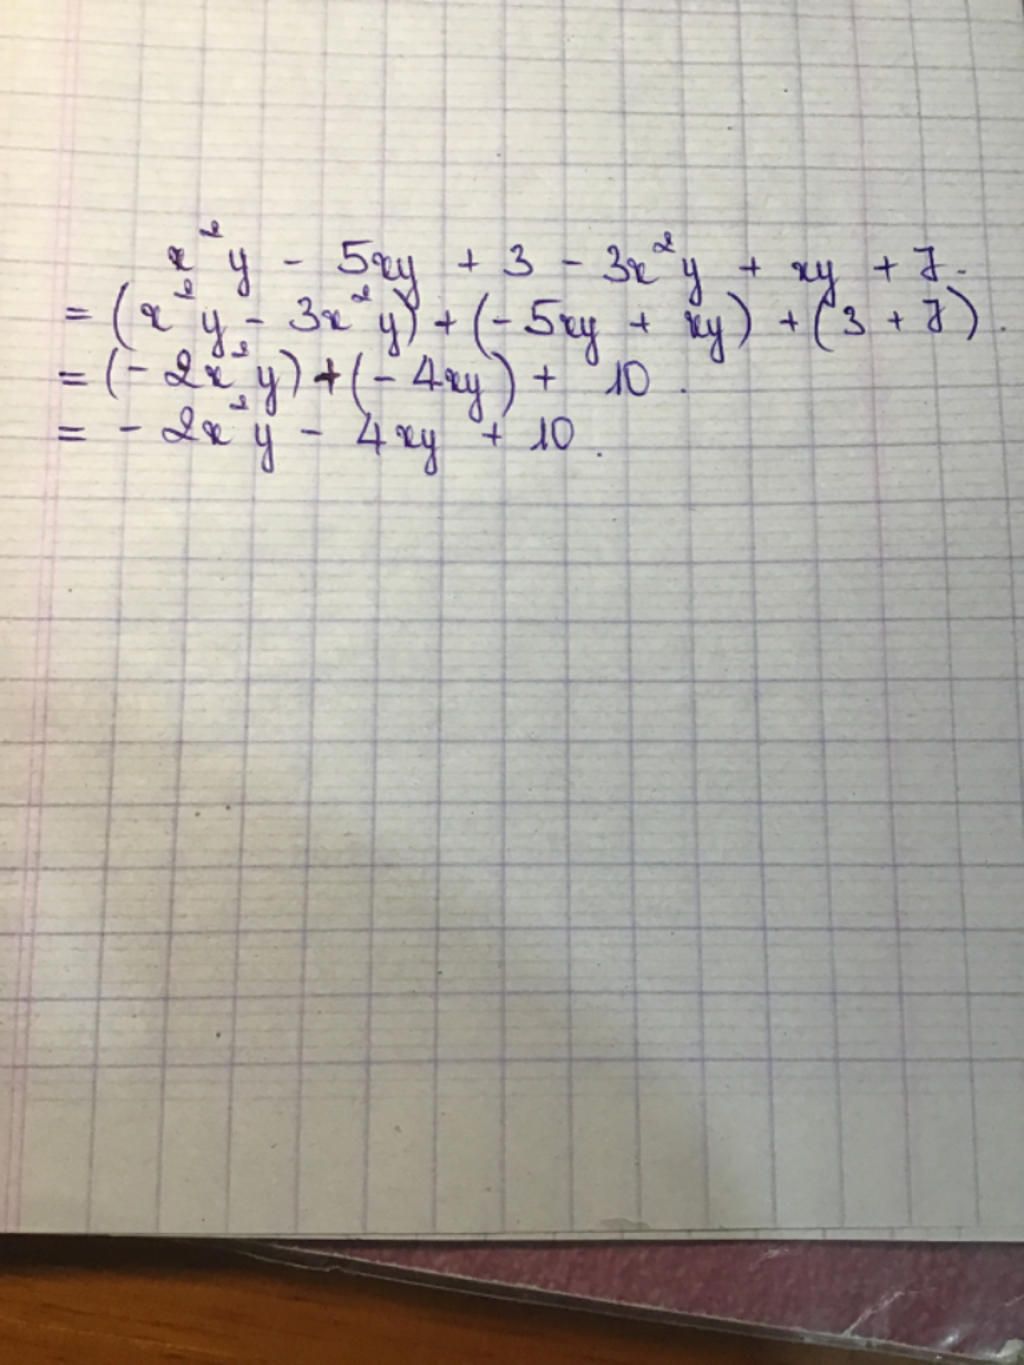 x²y - 5xy + 3 - 3x²y + xy + 7.
= (x²y - 3x²y) + (- 5xy + xy) + (3 + 7).
= (- 2x²y) + (- 4xy) + 10.
= - 2x²y - 4xy + 10.